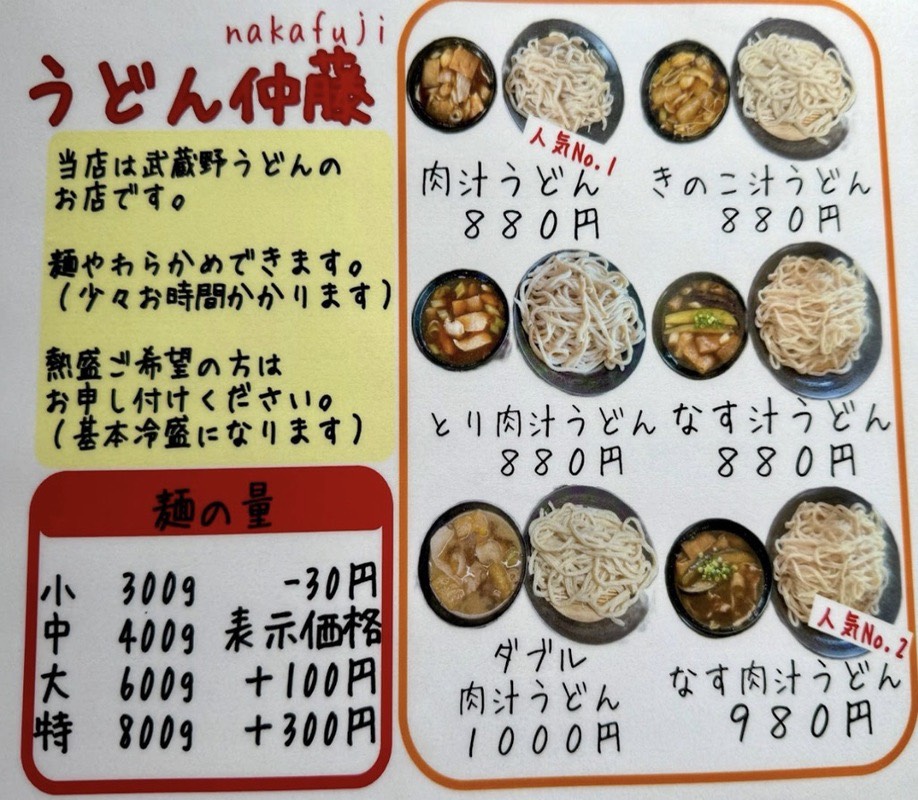 nakafuji
うどん仲藤
当店は武蔵野うどんの
お店です。
麺やわらかめできます。
(少々お時間かかります)
熱盛ご希望の方は
お申し付けください。
(基本冷盛になります)
麺の量
小 300g -30円
中 400g 表示価格
大 600g +100円
特 800g +300円
人気No.1
肉汁うどん
880円
きのこ汁うどん
880円
とり肉汁うどん
880円
なす汁うどん
880円
ダブル
肉汁うどん
1000円
人気No.2
なす肉汁うどん
980円